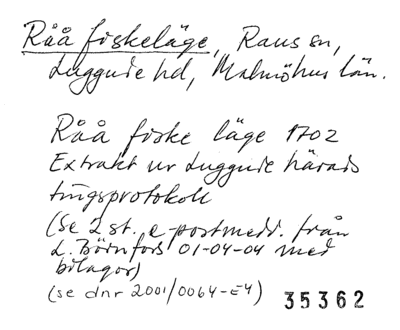 Råå fiskeläge, Raus sn,
Luggude hd, Malmöhus län.
Råå fiske läge 1702
Extrakt ur Luggude härads
tingsprotokoll
(Se 2 st. e-postmedd. från
L. Börnfors 01-04-04 med
bilagor)
(se dnr 2001/0064-E4) 35362